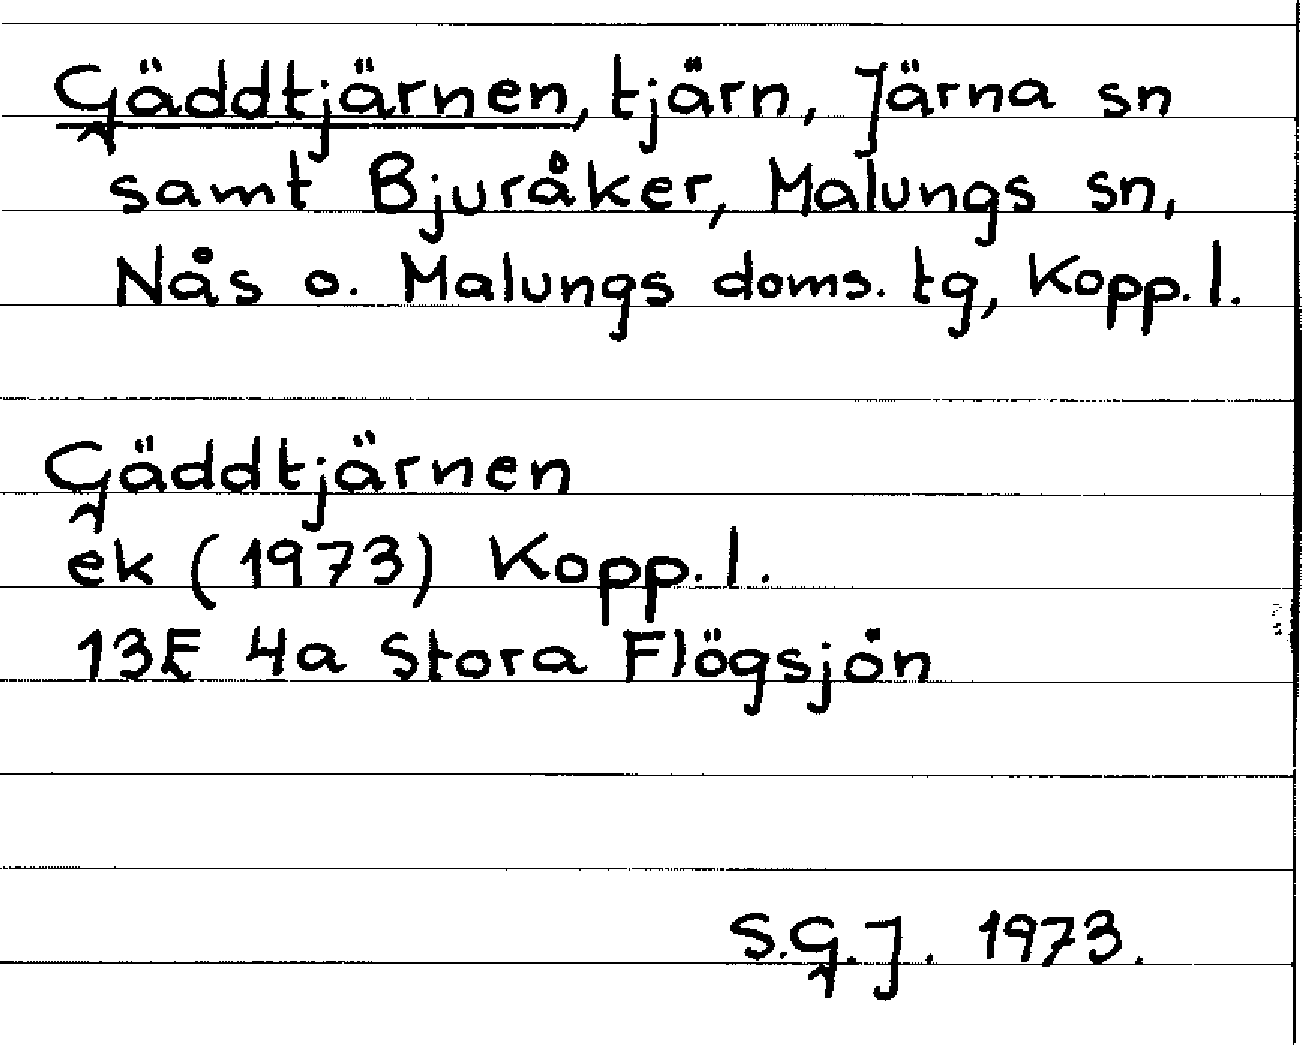 Gäddtjärnen, tjärn, Järna sn
samt Bjuråker, Malungs sn,
Nås o. Malungs doms. tg, Kopp. l.
Gäddtjärnen
ek (1973) Kopp. l.
13E 4a Stora Flögsjön
S.G.J. 1973.